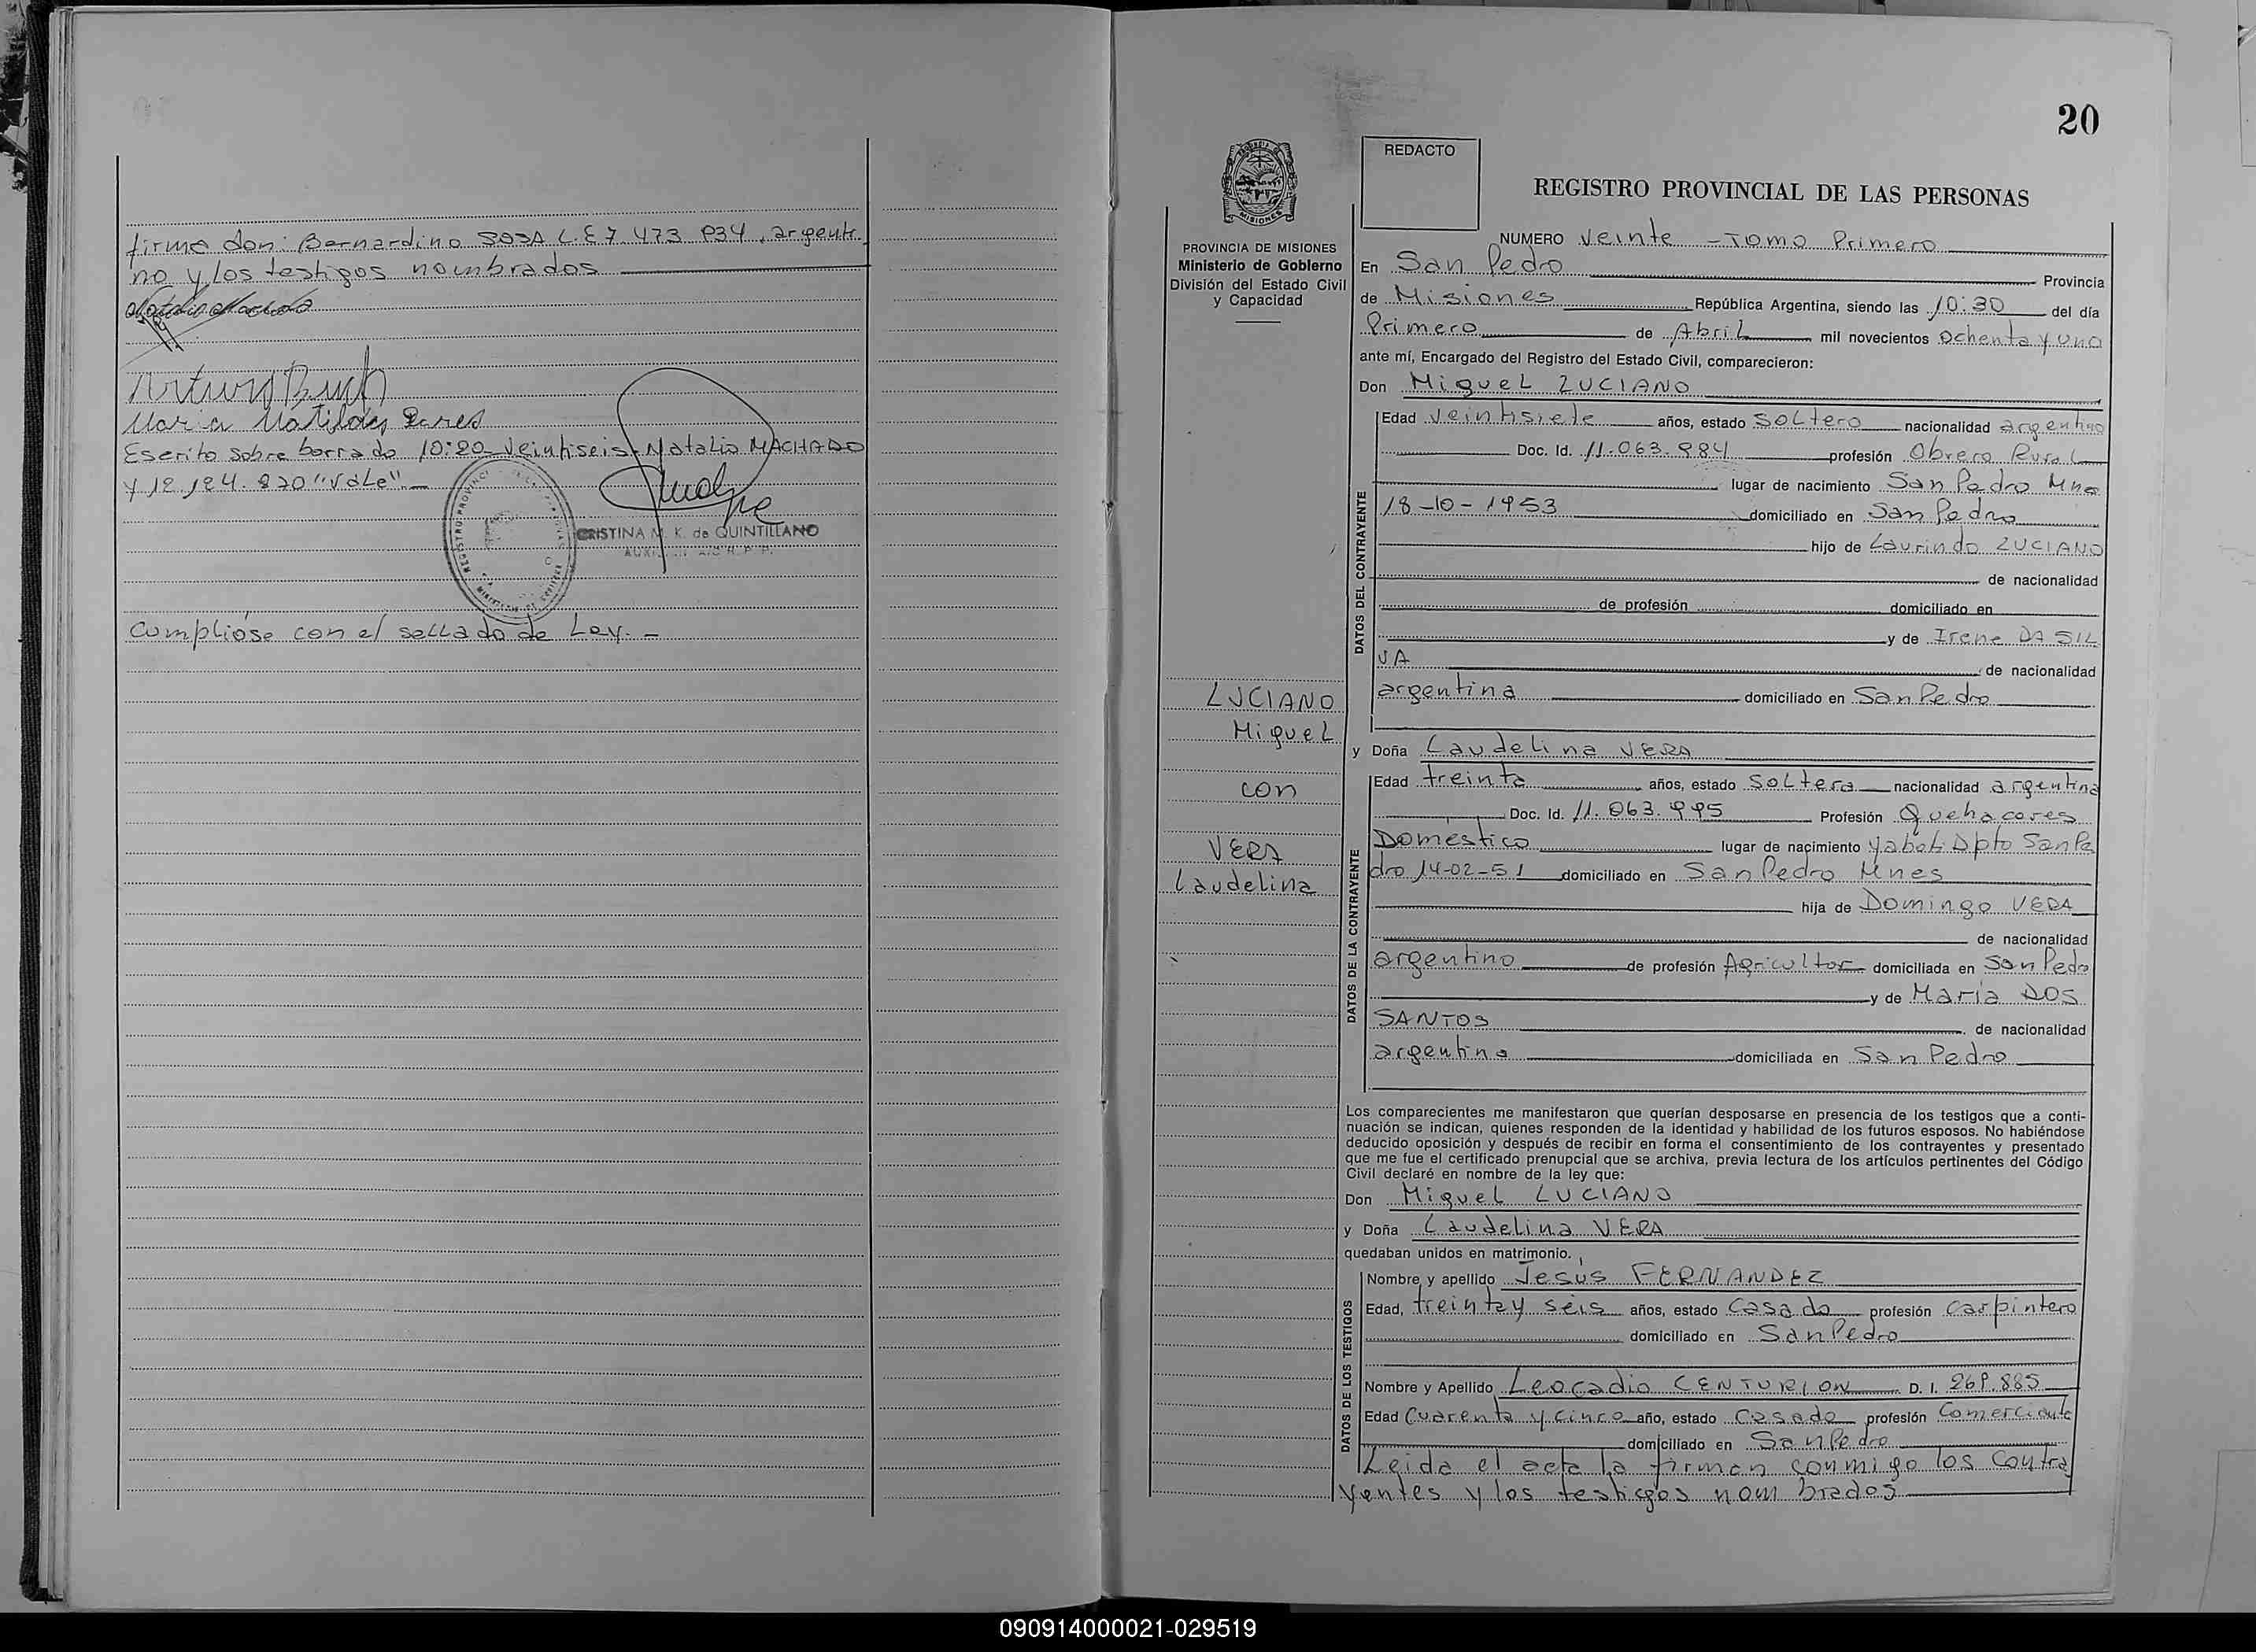 firma don: Bernardino SOSA L.E 7.473.934, argenti
no y los testigos nombrados
Arturo
Maria Matildes
Escrito sobre borrado 10:20 veintiseis Natalio MACHADO
y 12.124.820 "Vale".-
CRISTINA M. K. de QUINTILLANO
Cumplióse con el sellado de Ley.-
20
REDACTO
REGISTRO PROVINCIAL DE LAS PERSONAS
PROVINCIA DE MISIONES
Ministerio de Gobierno
División del Estado Civil
y Capacidad
NUMERO Veinte - Tomo Primero
En San Pedro Provincia
de Misiones República Argentina, siendo las 10:30 del día
Primero de Abril mil novecientos Ochenta y uno
ante mí, Encargado del Registro del Estado Civil, comparecieron:
Don Miguel LUCIANO
Edad Veintisiete años, estado Soltero nacionalidad argentino
Doc. Id. 11.063.984 profesión Obrero Rural
lugar de nacimiento San Pedro Mnes
18-10-1953 domiciliado en San Pedro
hijo de Laurindo LUCIANO
de nacionalidad
de profesión domiciliado en
y de Irene DA SIL
VA de nacionalidad
argentina domiciliado en San Pedro
DATOS DEL CONTRAYENTE
LUCIANO
Miguel
con
VERA
Laudelina
y Doña Laudelina VERA
Edad treinta años, estado Soltera nacionalidad argentina
Doc. Id. 11.063.995 Profesión Quehaceres
Domestico lugar de nacimiento Yaboti Dpto San Pe
dro 14-02-51 domiciliado en San Pedro Mnes
hija de Domingo VERA
de nacionalidad
argentino de profesión Agricultor domiciliada en San Pedro
y de María DOS
SANTOS de nacionalidad
argentina domiciliada en San Pedro
DATOS DE LA CONTRAYENTE
Los comparecientes me manifestaron que querían desposarse en presencia de los testigos que a conti-
nuación se indican, quienes responden de la identidad y habilidad de los futuros esposos. No habiéndose
deducido oposición y después de recibir en forma el consentimiento de los contrayentes y presentado
que me fue el certificado prenupcial que se archiva, previa lectura de los artículos pertinentes del Código
Civil declaré en nombre de la ley que:
Don Miguel LUCIANO
y Doña Laudelina VERA
quedaban unidos en matrimonio.
Nombre y apellido Jesús FERNANDEZ
Edad, treinta y seis años, estado Casado profesión Carpintero
domiciliado en San Pedro
Nombre y Apellido Leocadio CENTURION D. I. 269.885
Edad Cuarenta y cinco año, estado Casado profesión Comerciante
domiciliado en San Pedro
DATOS DE LOS TESTIGOS
Leida el acta la firman conmigo los Contra
yentes y los testigos nombrados
090914000021-029519